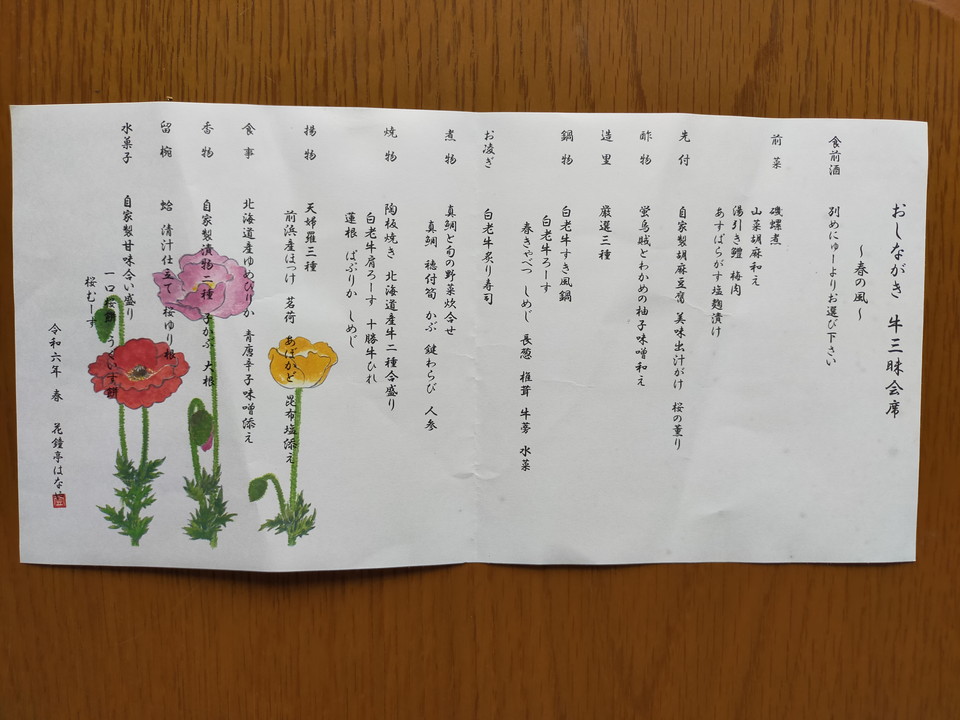 おしながき 牛三昧会席
～春の風～
食前酒 別めにゅーよりお選び下さい
前菜 磯螺煮
山菜胡麻和え
湯引き鱧 梅肉
あすぱらがす塩麹漬け
先付 自家製胡麻豆腐 美味出汁がけ 桜の薫り
酢物 蛍烏賊とわかめの柚子味噌和え
造里 厳選三種
鍋物 白老牛すき風鍋
白老牛ろーす
春きゃべつ しめじ 長葱 椎茸 牛蒡 水菜
お凌ぎ 白老牛炙り寿司
煮物 真鯛と旬の野菜炊合せ
真鯛 穂付筍 かぶ 鍵わらび 人参
焼物 陶板焼き 北海道産牛二種合盛り
白老牛肩ろーす 十勝牛ひれ
蓮根 ぱぷりか しめじ
揚物 天婦羅三種
前浜産ほっけ 茗荷 あぼかど 昆布塩添え
食事 北海道産ゆめぴりか 青唐辛子味噌添え
香物 自家製漬物二種 子かぶ 大根
留椀 蛤 清汁仕立て 桜ゆり根
水菓子 自家製甘味合い盛り
一口桜餅 うぐいす餅
桜むーす
令和六年 春 花鐘亭はな